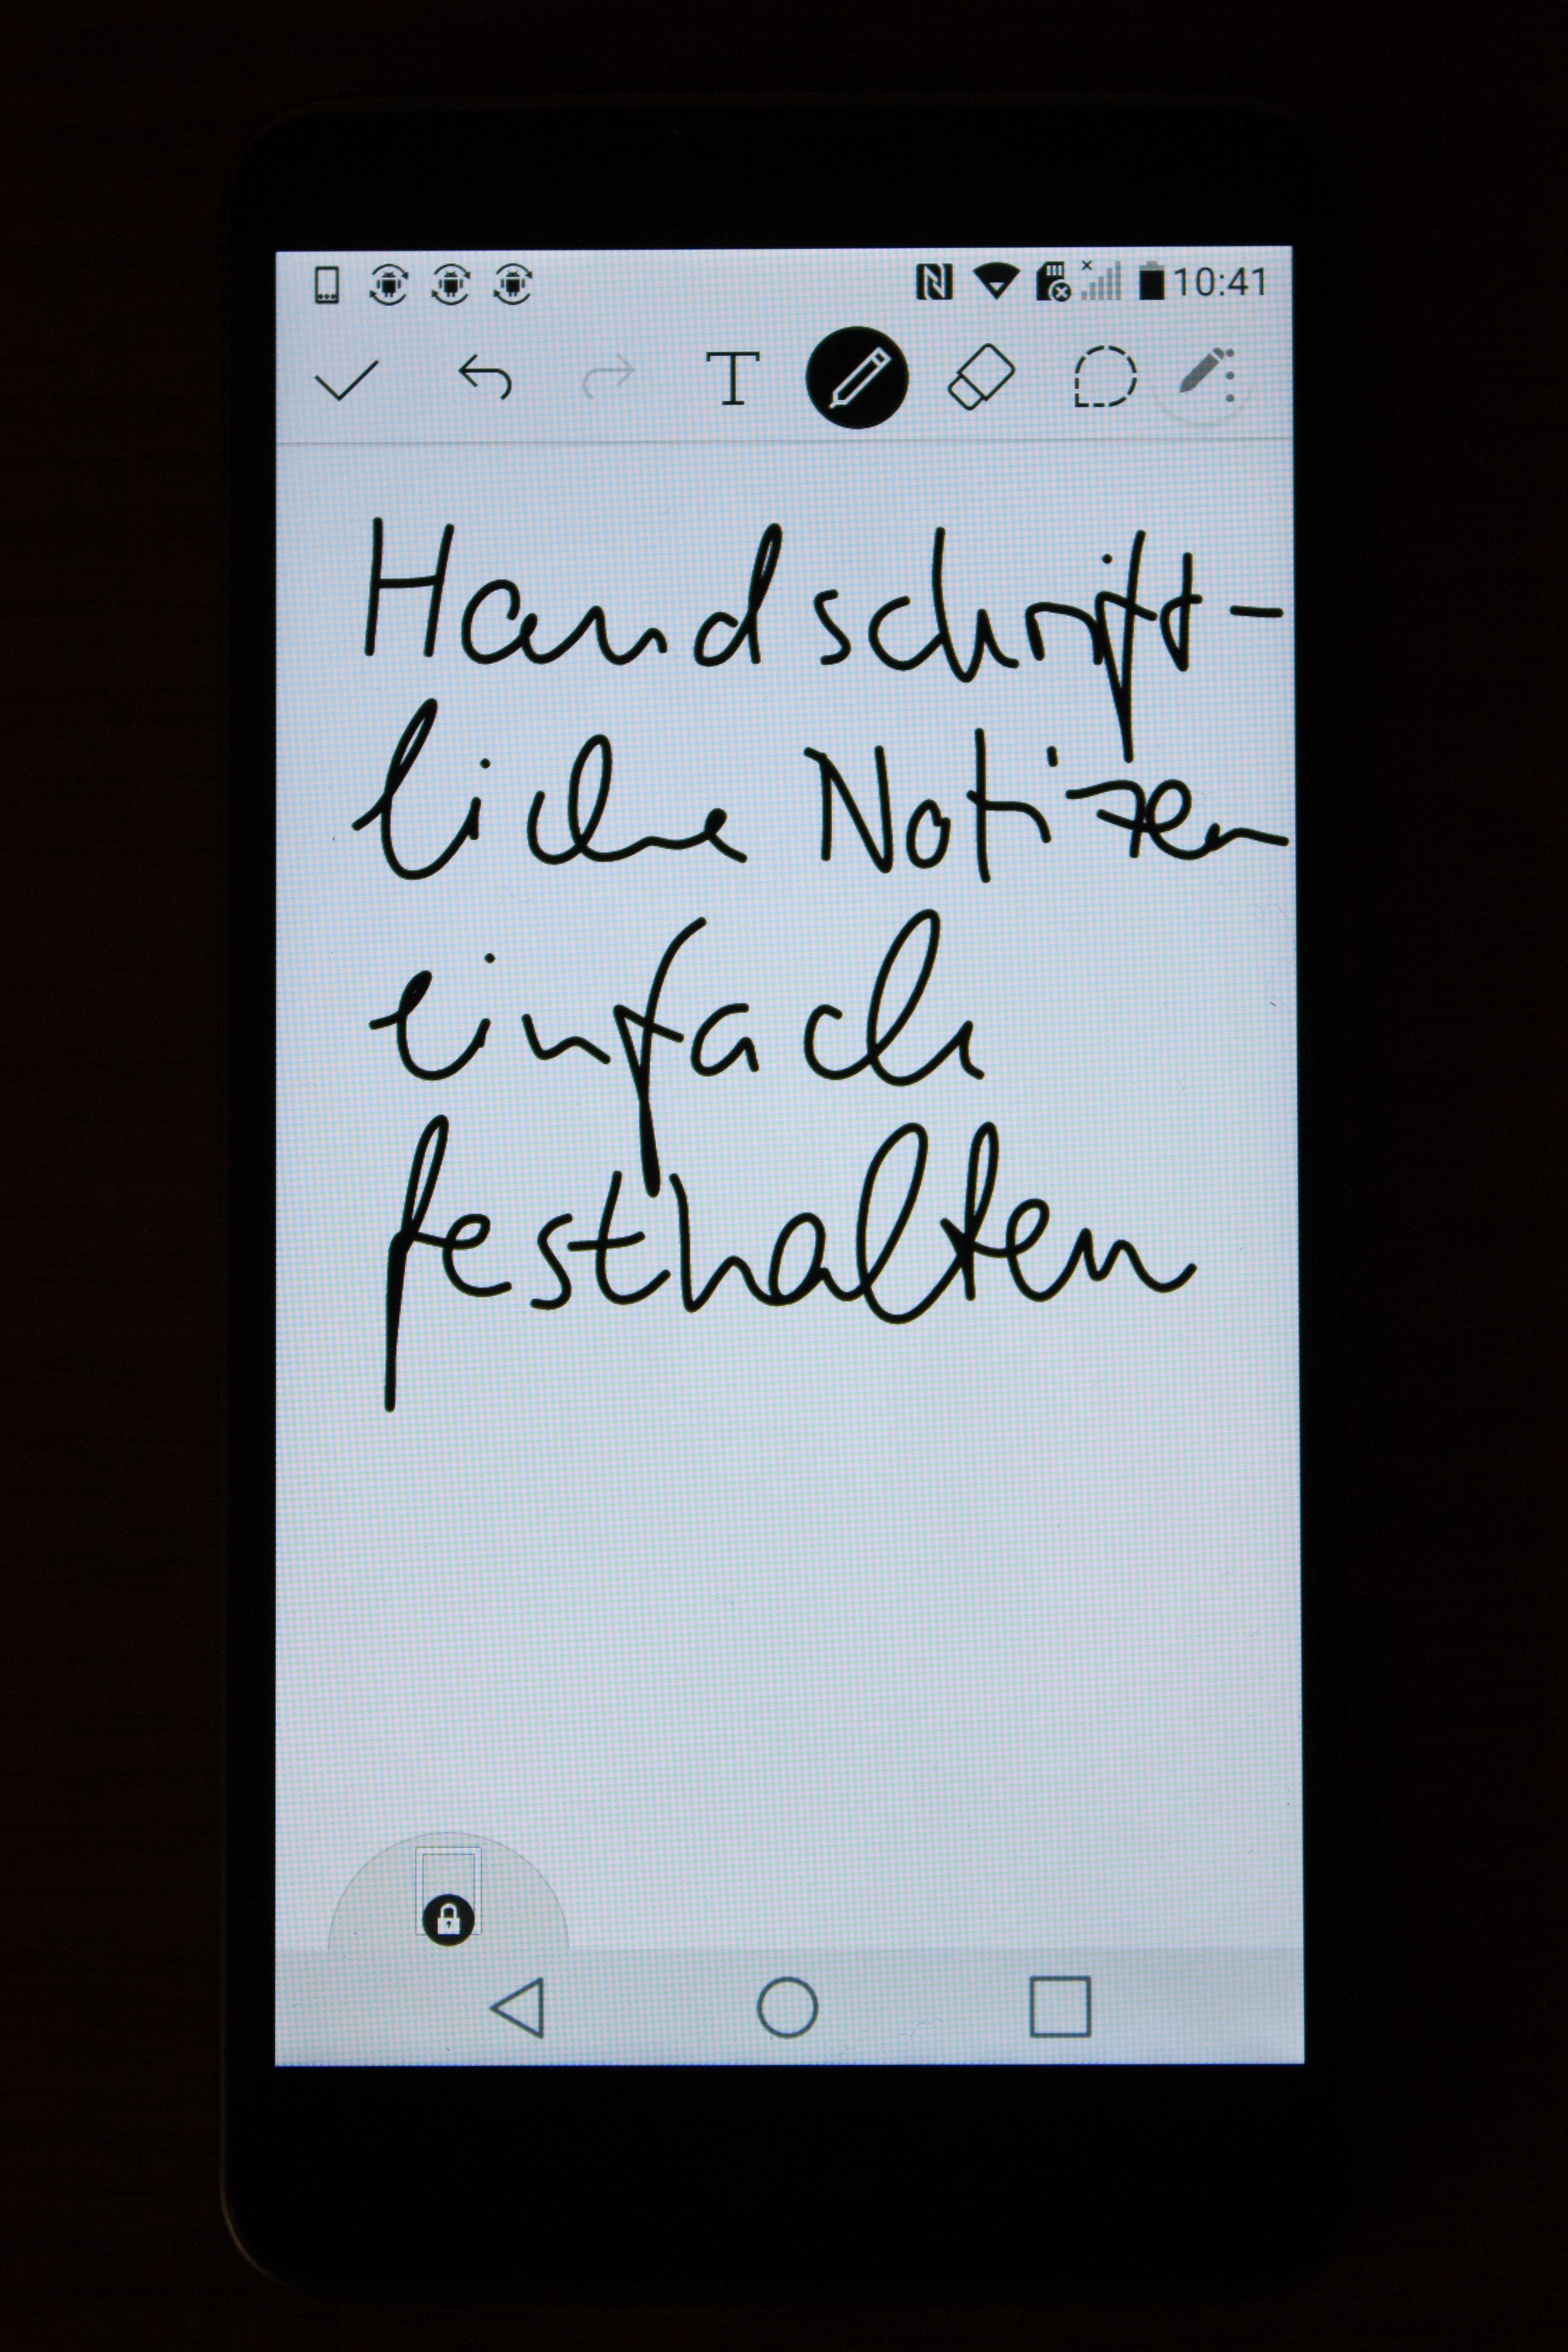 10:41
T
Handschrift-
liche Notizen
einfach
festhalten